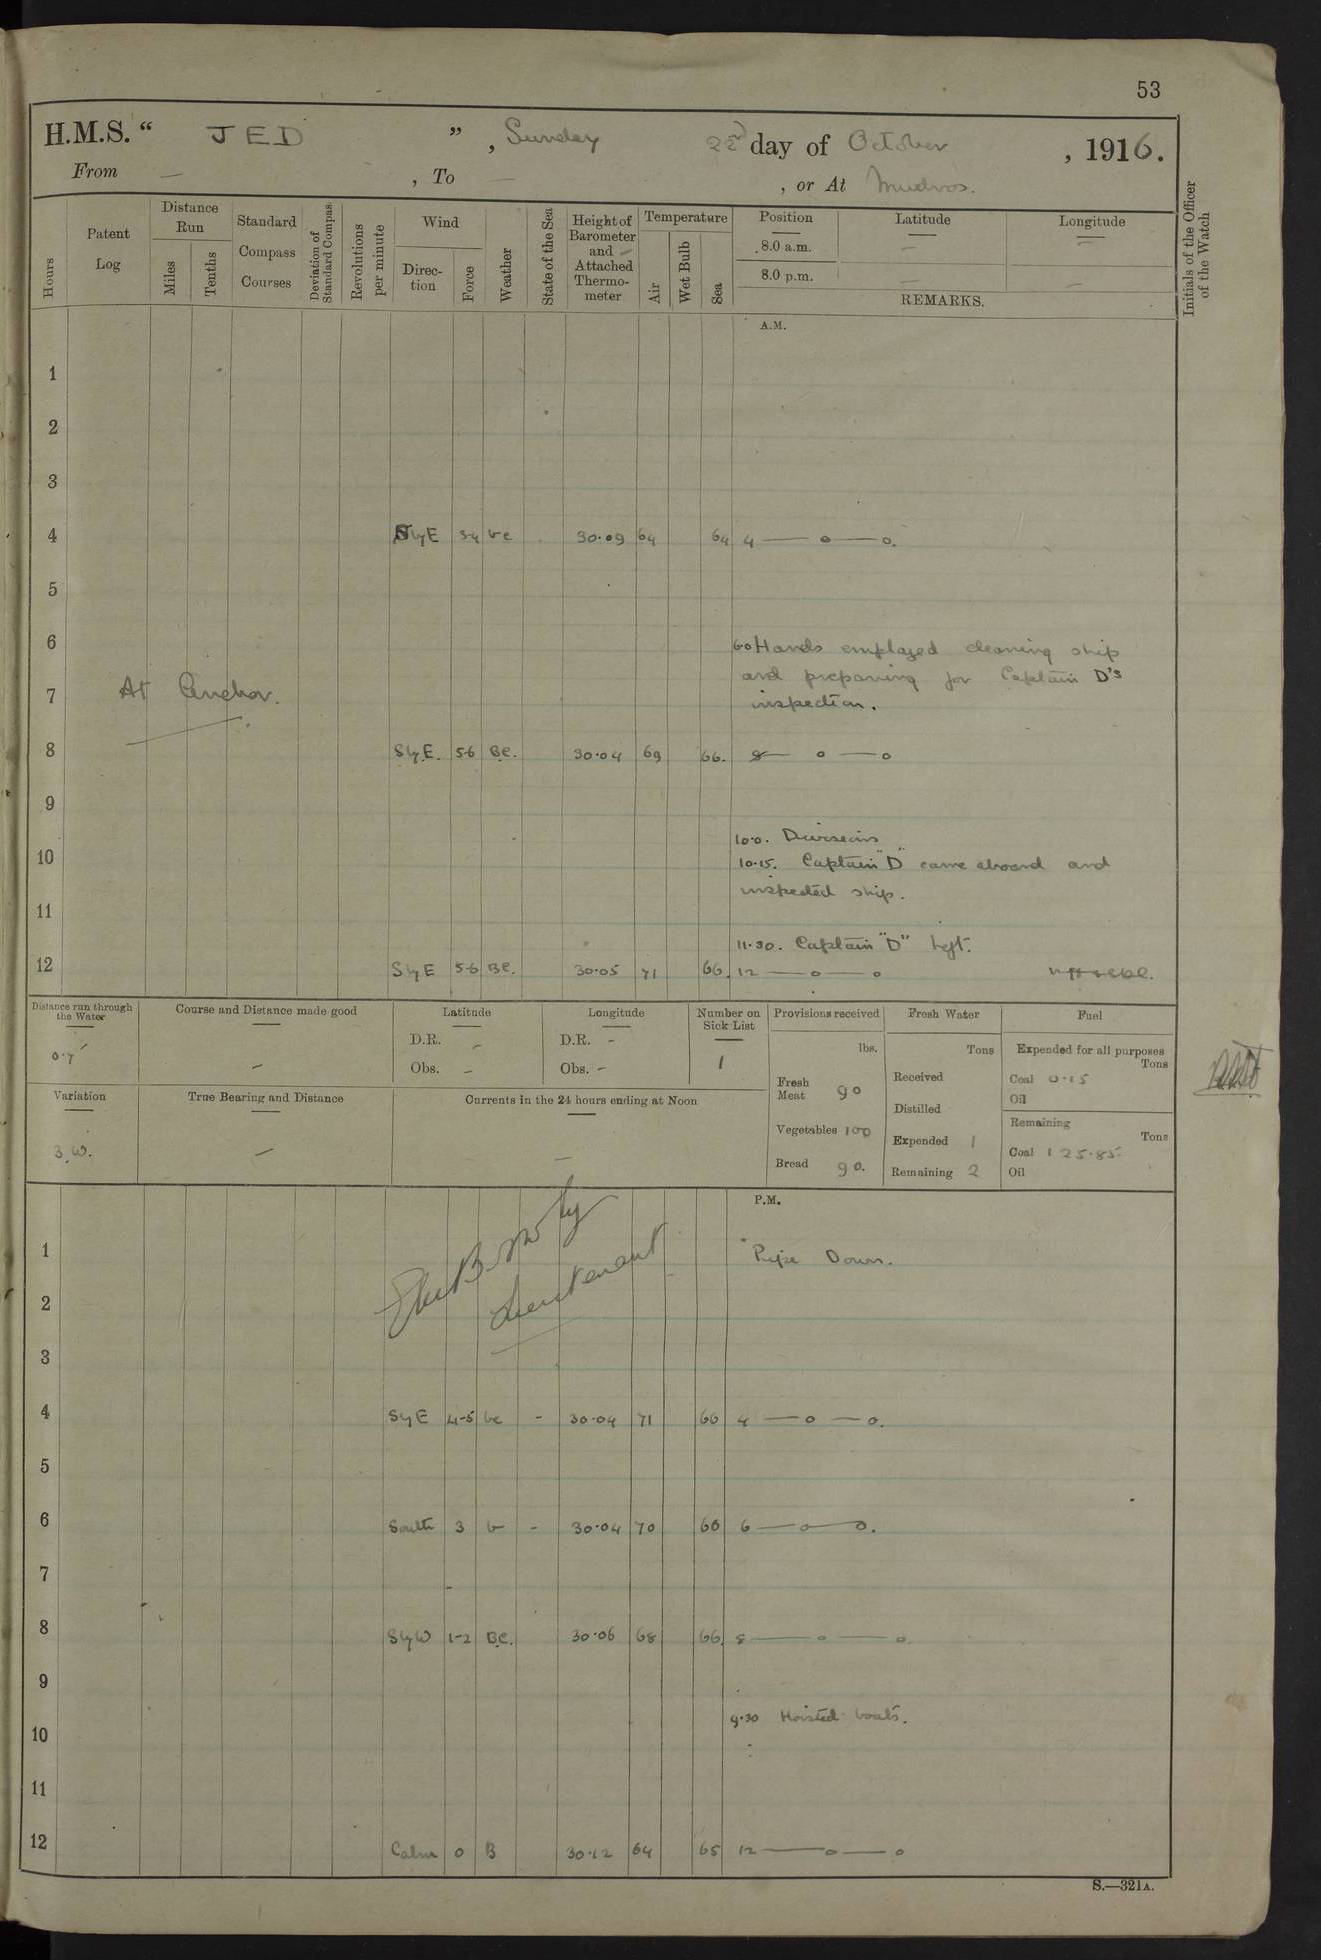 53
H.M.S. “ JED ” , Sunday 22nd day of October , 1916.
From — , To — , or At Mudros.
Hours
Patent Log
Distance Run
Miles
Tenths
Standard Compass Courses
Deviation of Standard Compass
Revolutions per minute
Wind
Direction
Force
Weather
State of the Sea
Height of Barometer and Attached Thermometer
Temperature
Air
Wet Bulb
Sea
Position
Latitude
Longitude
8.0 a.m. — —
8.0 p.m. — —
REMARKS.
Initials of the Officer of the Watch
A.M.
1
2
3
4 SlyE 3-4 bc 30.09 64 64 4 — o — o.
5
6 6.0 Hands employed cleaning ship
and preparing for Captain D's
7 At Anchor. inspection.
8 SlyE. 5-6 BC. 30.04 69 66. 8 — o — o
9
10.0. Divisions
10 10.15. Captain "D" came aboard and
inspected ship.
11
11.30. Captain "D" left.
12 SlyE 5-6 BC. 30.05 71 66. 12 — o — o
Distance run through the Water
0.7
Course and Distance made good
—
Latitude
D.R. —
Obs. —
Longitude
D.R. —
Obs. —
Number on Sick List
1
Provisions received
lbs.
Fresh Meat 90
Vegetables 100
Bread 90.
Fresh Water
Tons
Received
Distilled
Expended 1
Remaining 2
Fuel
Expended for all purposes
Tons
Coal 0.15
Oil
Remaining
Tons
Coal 125.85
Oil
Variation
3.W.
True Bearing and Distance
—
Currents in the 24 hours ending at Noon
—
P.M.
1 Pipe Down.
Lieutenant
2
3
4 SlyE 4-5 bc - 30.04 71 66 4 — o — o.
5
6 South 3 b - 30.04 70 66 6 — o — o.
7
8 SlyW 1-2 BC. 30.06 68 66. 8 — o — o.
9
9.30 Hoisted boats.
10
11
12 Calm 0 B 30.12 64 65 12 — o — o
S.—321A.